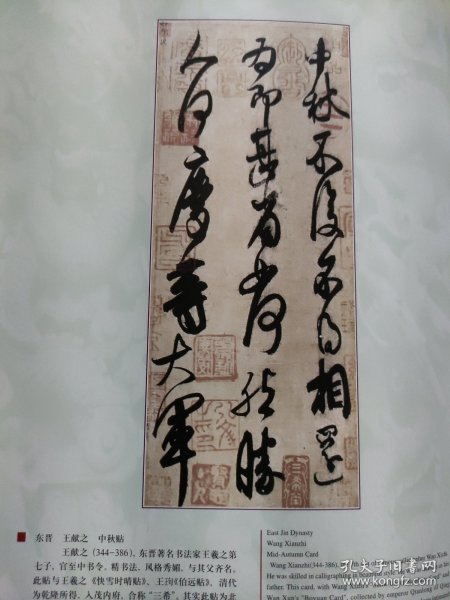 中秋不復不得相還
為即甚省如何然勝
人何慶等大軍
东晋 王献之 中秋贴
王献之(344-386),东晋著名书法家王羲之第
七子,官至中书令。精书法,风格秀媚,与其父齐名。
此贴与王羲之《快雪时晴贴》、王珣《伯远贴》,清代
为乾隆所得,入茂内府,合称“三希”。其实此贴为北
East Jin Dynasty
Wang Xianzhi
Mid-Autumn Card
Wang Xianzhi(344-386),
He was skilled in calligraphing
father. This card, with Wang
Wang Xun's "Boyuan Card", collected by emperor Qianlong of
孔夫子旧书网